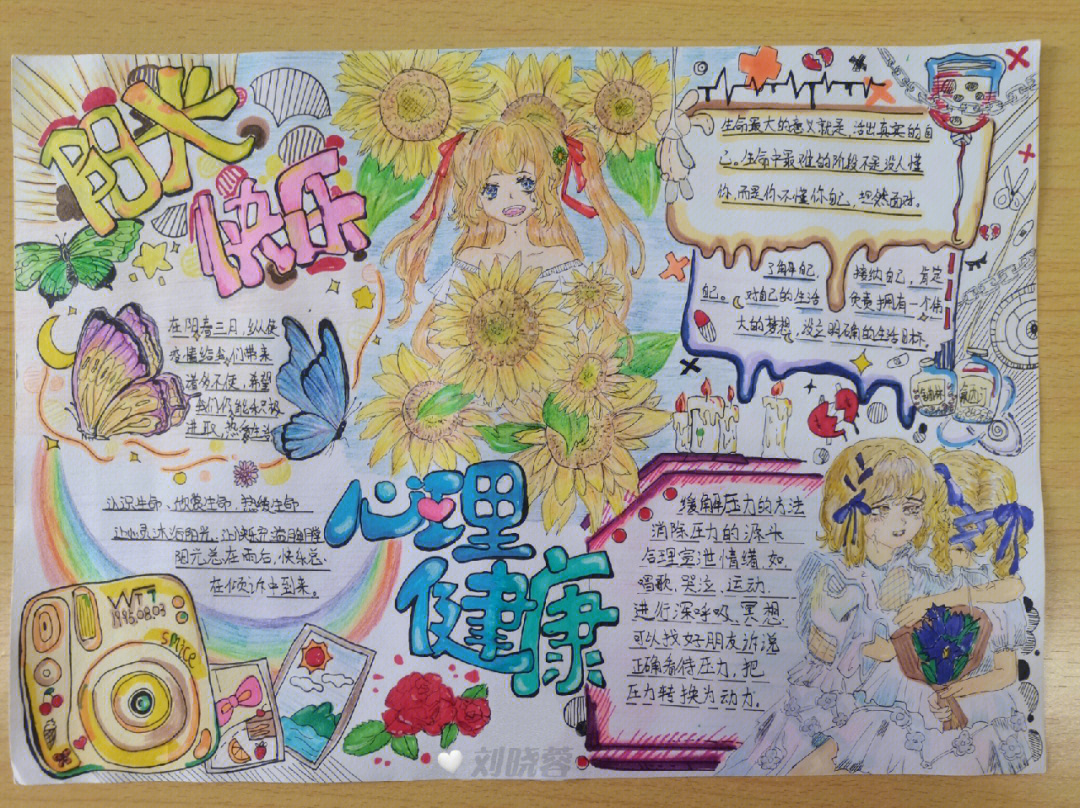 阳光
快乐
在阳春三月,纵使
疫情给我们带来
诸多不便,希望
我们仍能积极
进取,热爱生活
认识生命、欣赏生命、热爱生命
让心灵沐浴阳光,让快乐充满胸膛
阳光总在雨后,快乐总
在倾诉中到来。
WT7
1995.08.03
spice
心理
健康
生命最大的意义就是,活出真实的自
己。生命中最难的阶段不是没人懂
你,而是你不懂你自己,坦然面对。
了解自己, 接纳自己,肯定
自己。对自己的生活 负责拥有一个伟
大的梦想,设立明确的生活目标。
缓解压力的方法
消除压力的源头
合理宣泄情绪,如
唱歌、哭泣、运动.
进行深呼吸、冥想
可以找好朋友诉说
正确看待压力,把
压力转换为动力.
刘晓蓉